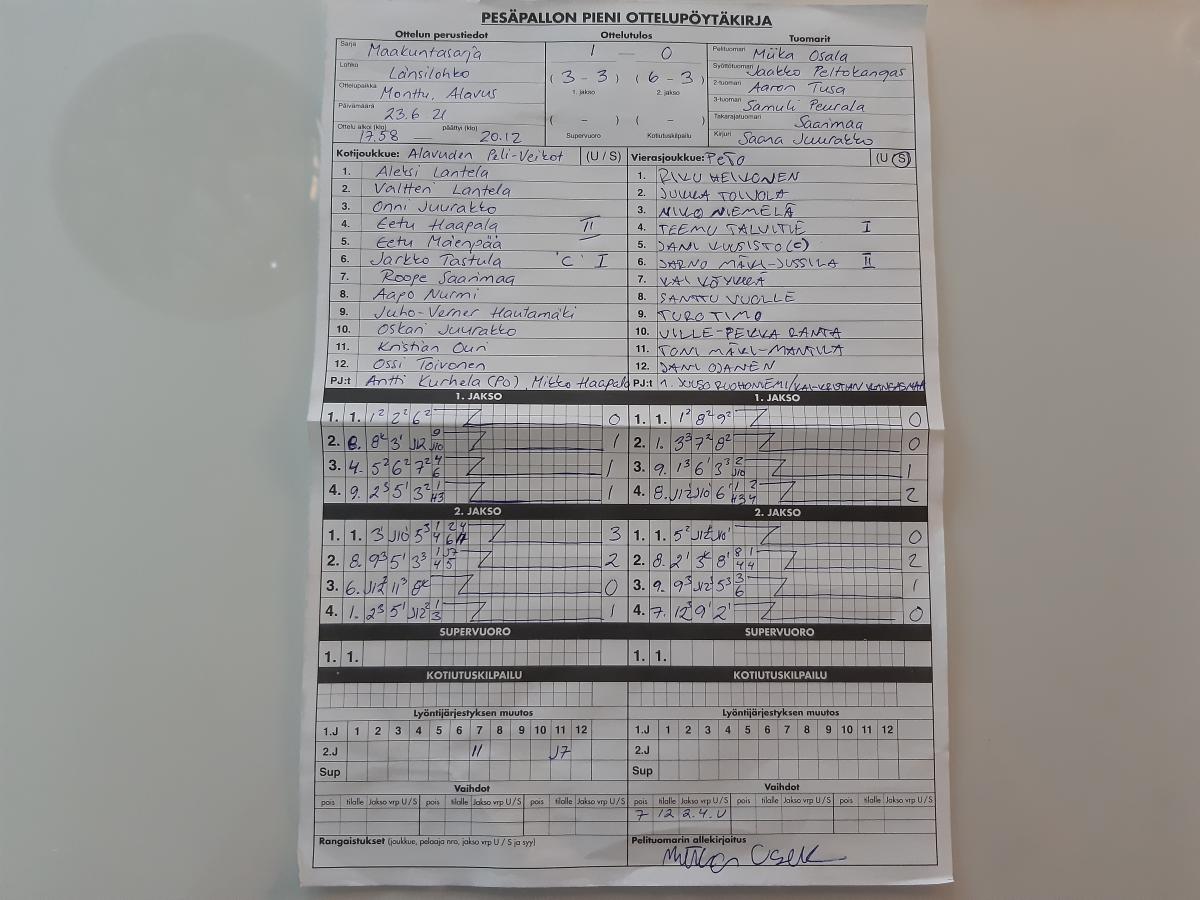 PESÄPALLON PIENI OTTELUPÖYTÄKIRJA
Ottelun perustiedot
Ottelutulos
Tuomarit
Sarja Maakuntasarja
Lohko Länsilohko
Ottelupaikka Monttu, Alavus
Päivämäärä 23.6 21
Ottelu alkoi (klo) 17.58 — päättyi (klo) 20.12
1 — 0
(3 - 3) (6 - 3)
1. jakso 2. jakso
( - ) ( - )
Supervuoro Kotiutuskilpailu
Pelituomari Miika Osala
Syöttötuomari Jaakko Peltokangas
2-tuomari Aaron Tusa
3-tuomari Samuli Peurala
Takarajatuomari Saarimaa
Kirjuri Saana Juurakko
Kotijoukkue: Alavuden Peli-Veikot (U / S)
1. Aleksi Lantela
2. Valtteri Lantela
3. Onni Juurakko
4. Eetu Haapala II
5. Eetu Mäenpää
6. Jarkko Tastula 'C' I
7. Roope Saarimaa
8. Aapo Nurmi
9. Juho-Verner Hautamäki
10. Oskari Juurakko
11. Kristian Ouri
12. Ossi Toivonen
PJ:t Antti Kurhela (PO), Mikko Haapala
Vierasjoukkue: PeTo (U S)
1. RIKU HEIKONEN
2. JUKKA TOIVOLA
3. NIKO NIEMELÄ
4. TEEMU TALVITIE I
5. JANI KUUSISTO (C)
6. JARNO MÄKI-JUSSILA II
7. KAI KÖYKKÄ
8. SANTTU VUOLLE
9. TURO TIMO
10. VILLE-PEKKA RANTA
11. TONI MÄKI-MANTILA
12. JANI OJANEN
PJ:t 1. JUUSO RUOHONIEMI/KAI-KRISTIAN KANGASMAA
1. JAKSO
1. 1. 1² 2² 6² 0
2. 8. 3¹ J12 J10 9 1
3. 4. 5² 6² 7² 4 6 1
4. 9. 2³ 5¹ 3² 1 H3 1
1. JAKSO
1. 1. 1² 8² 9² 0
2. 1. 3³ 7² 8² 0
3. 9. 1³ 6¹ 3³ 2 J10 1
4. 8. J12¹ J10¹ 6¹ 1 2 H3 4 2
2. JAKSO
1. 1. 3¹ J10¹ 5³ 1 2 4 4 6 3
2. 8. 9³ 5¹ 3³ 1 J7 4 5 2
3. 6. J12² 11³ 8ᵏ 0
4. 1. 2³ 5¹ J12² 1 3 1
2. JAKSO
1. 1. 5² J12 J10¹ 0
2. 8. 2¹ 3ᵏ 8¹ 8 1 4 4 2
3. 9. 9³ J12¹ 5³ 3 6 1
4. 7. 12³ 9¹ 2¹ 0
SUPERVUORO SUPERVUORO
1. 1. 1. 1.
KOTIUTUSKILPAILU KOTIUTUSKILPAILU
Lyöntijärjestyksen muutos Lyöntijärjestyksen muutos
1.J 1 2 3 4 5 6 7 8 9 10 11 12 1.J 1 2 3 4 5 6 7 8 9 10 11 12
2.J 11 J7 2.J
Sup Sup
Vaihdot Vaihdot
pois tilalle Jakso vrp U / S pois tilalle Jakso vrp U / S pois tilalle Jakso vrp U / S pois tilalle Jakso vrp U / S pois tilalle Jakso vrp U / S pois tilalle Jakso vrp U / S
7 12 2.4.U
Rangaistukset (joukkue, pelaaja nro, jakso vrp U / S ja syy)
Pelituomarin allekirjoitus